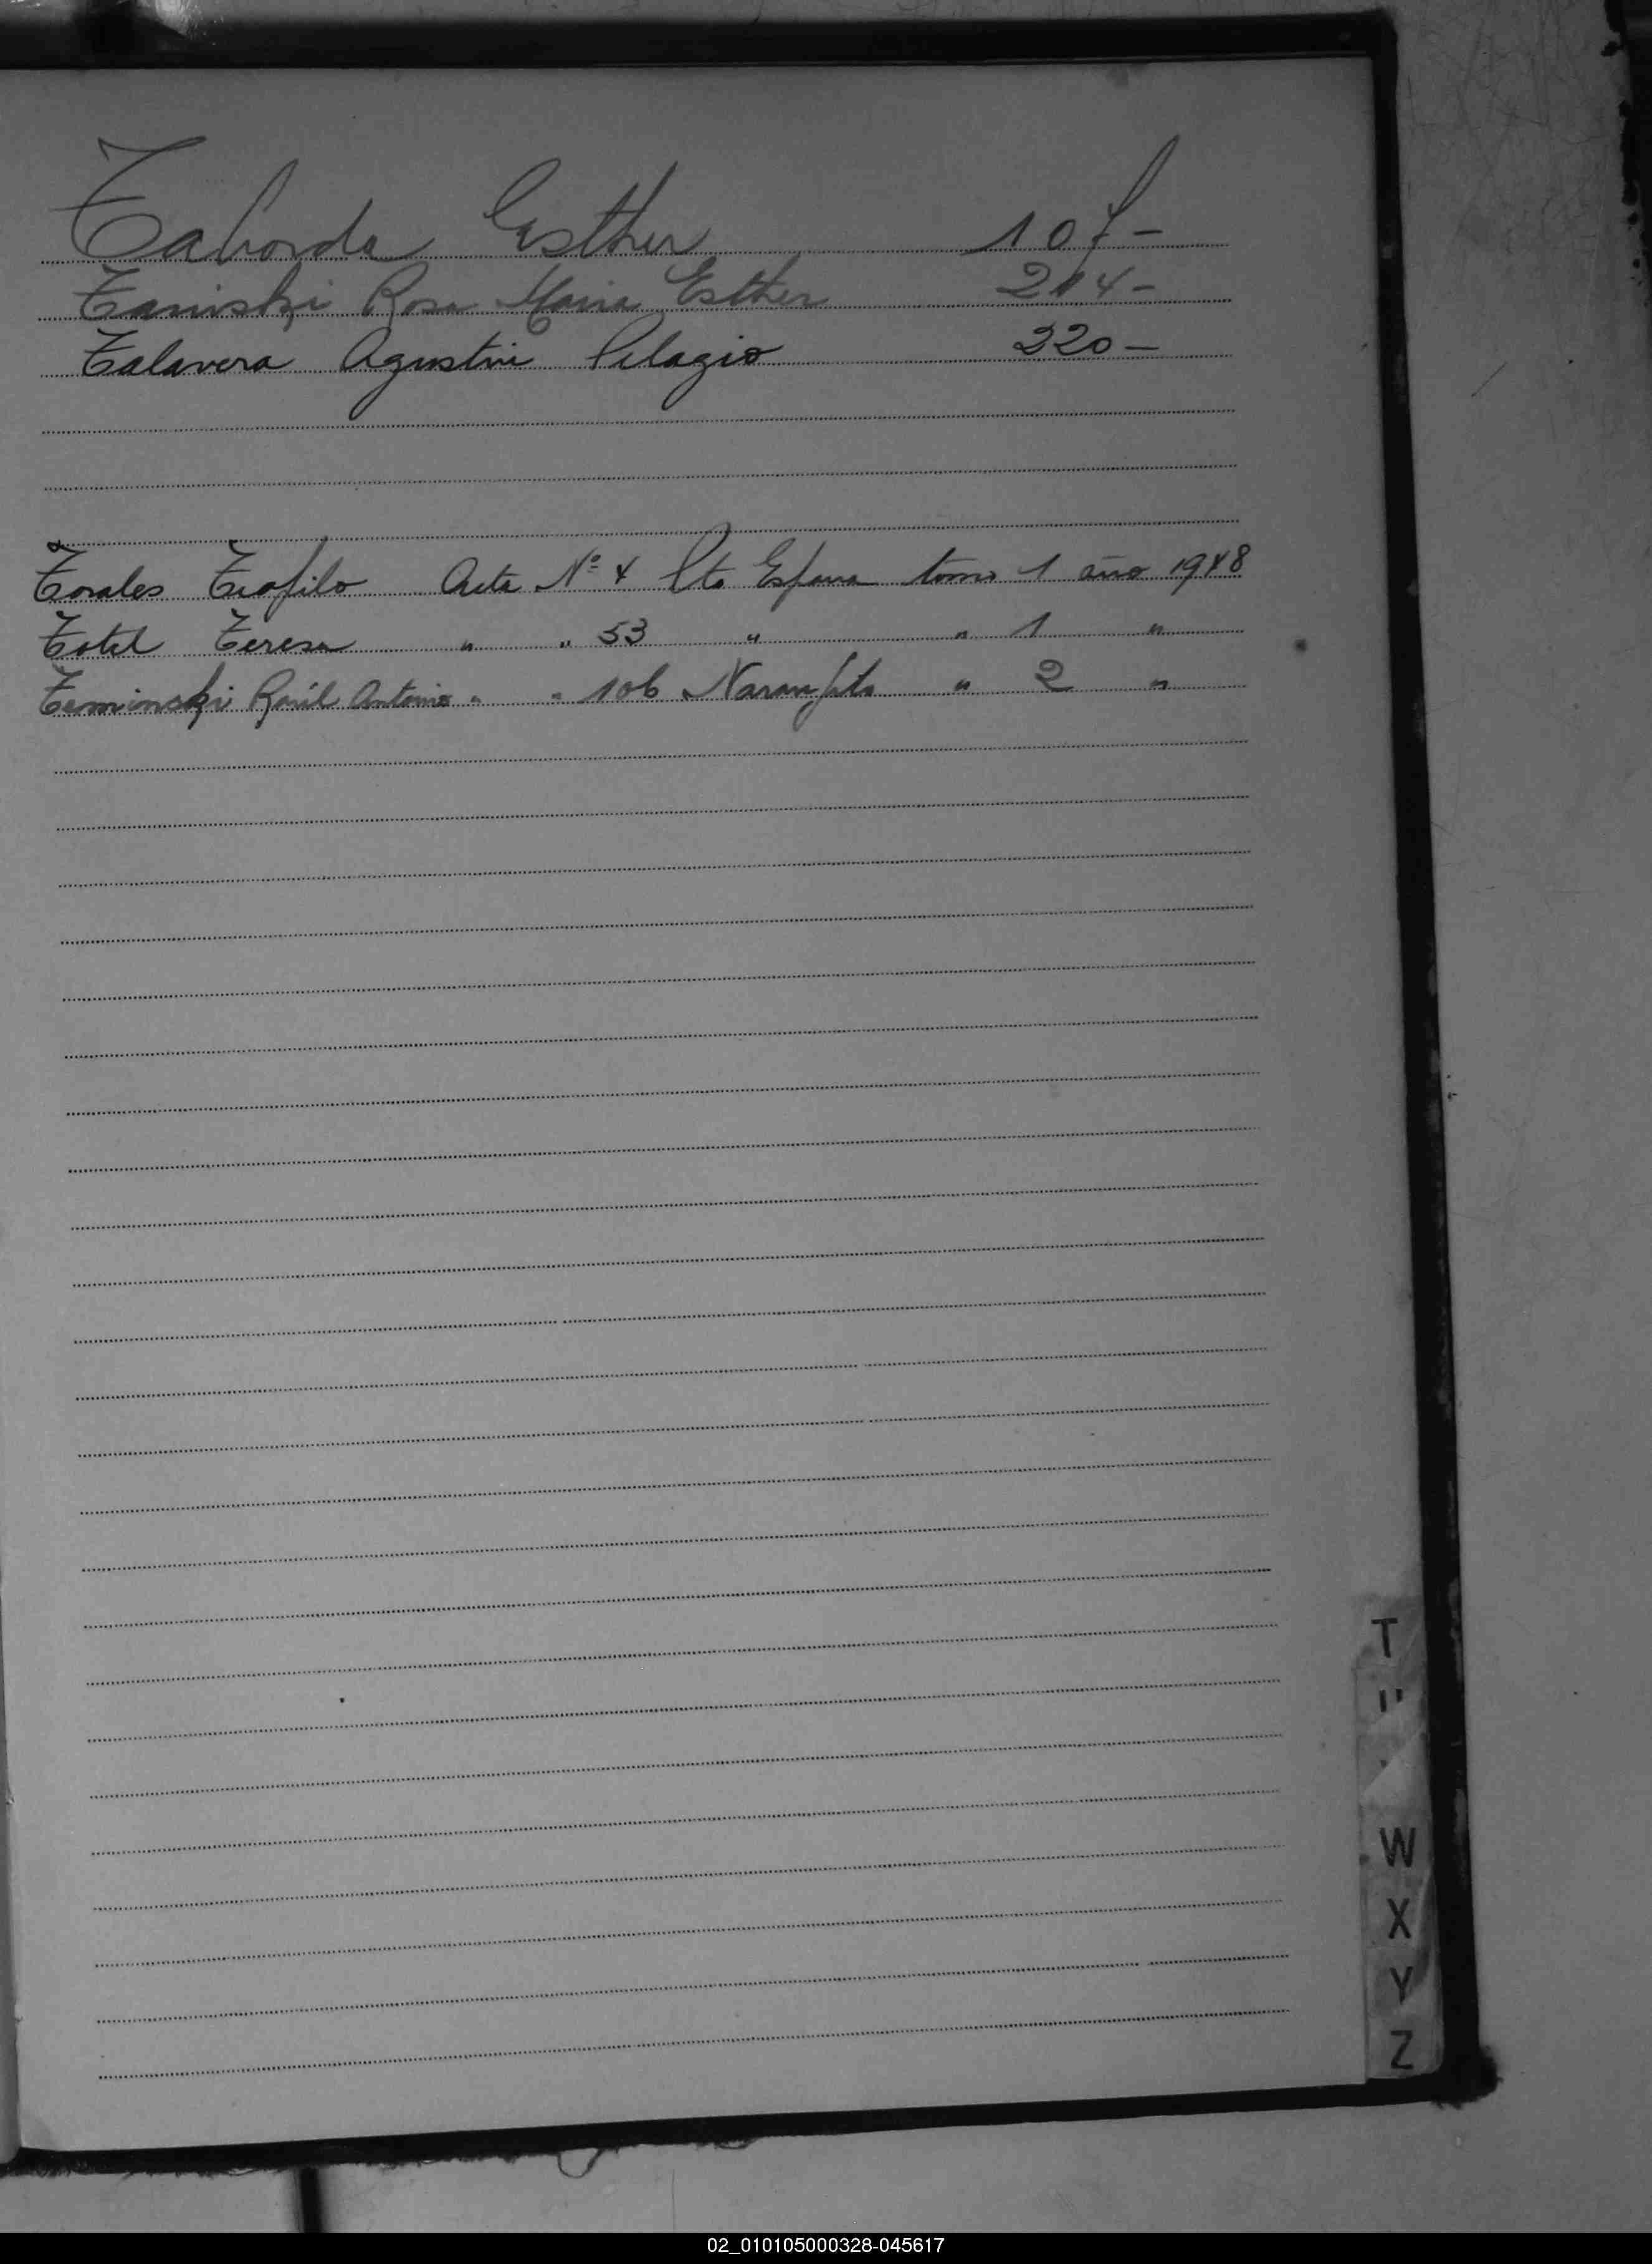 Taborda Esther 107-
Taniski Rosa Maria Esther 214-
Talavera Agustin Pelagio 220-
Torales Teofilo Acta Nº 4 Pto España tomo 1 año 1948
Totel Teresa " " 53 " " 1 "
Teminski Raúl Antonio " " 106 Naranjito " 2 "
T
W
X
Y
Z
02_010105000328-045617